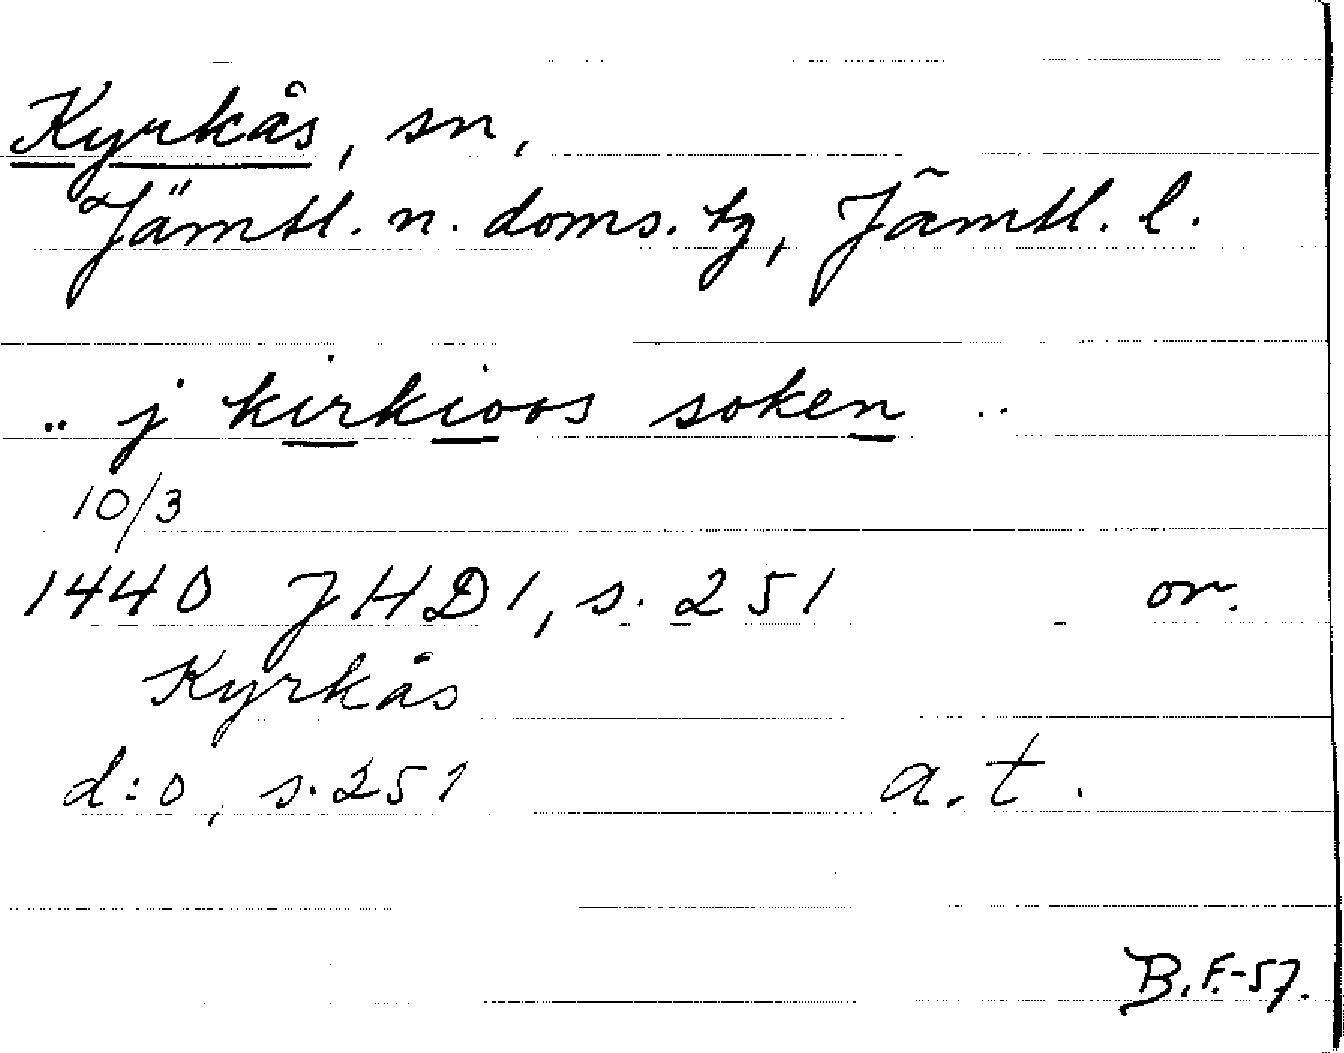 Kyrkås, sn,
Jämtl. n. doms. tg, Jämtl. l.
.. j kirkioos soken ..
10/3
1440 JHD1, s. 251 or.
Kyrkås
d:o, s. 251 a.t.
B.F.-57.